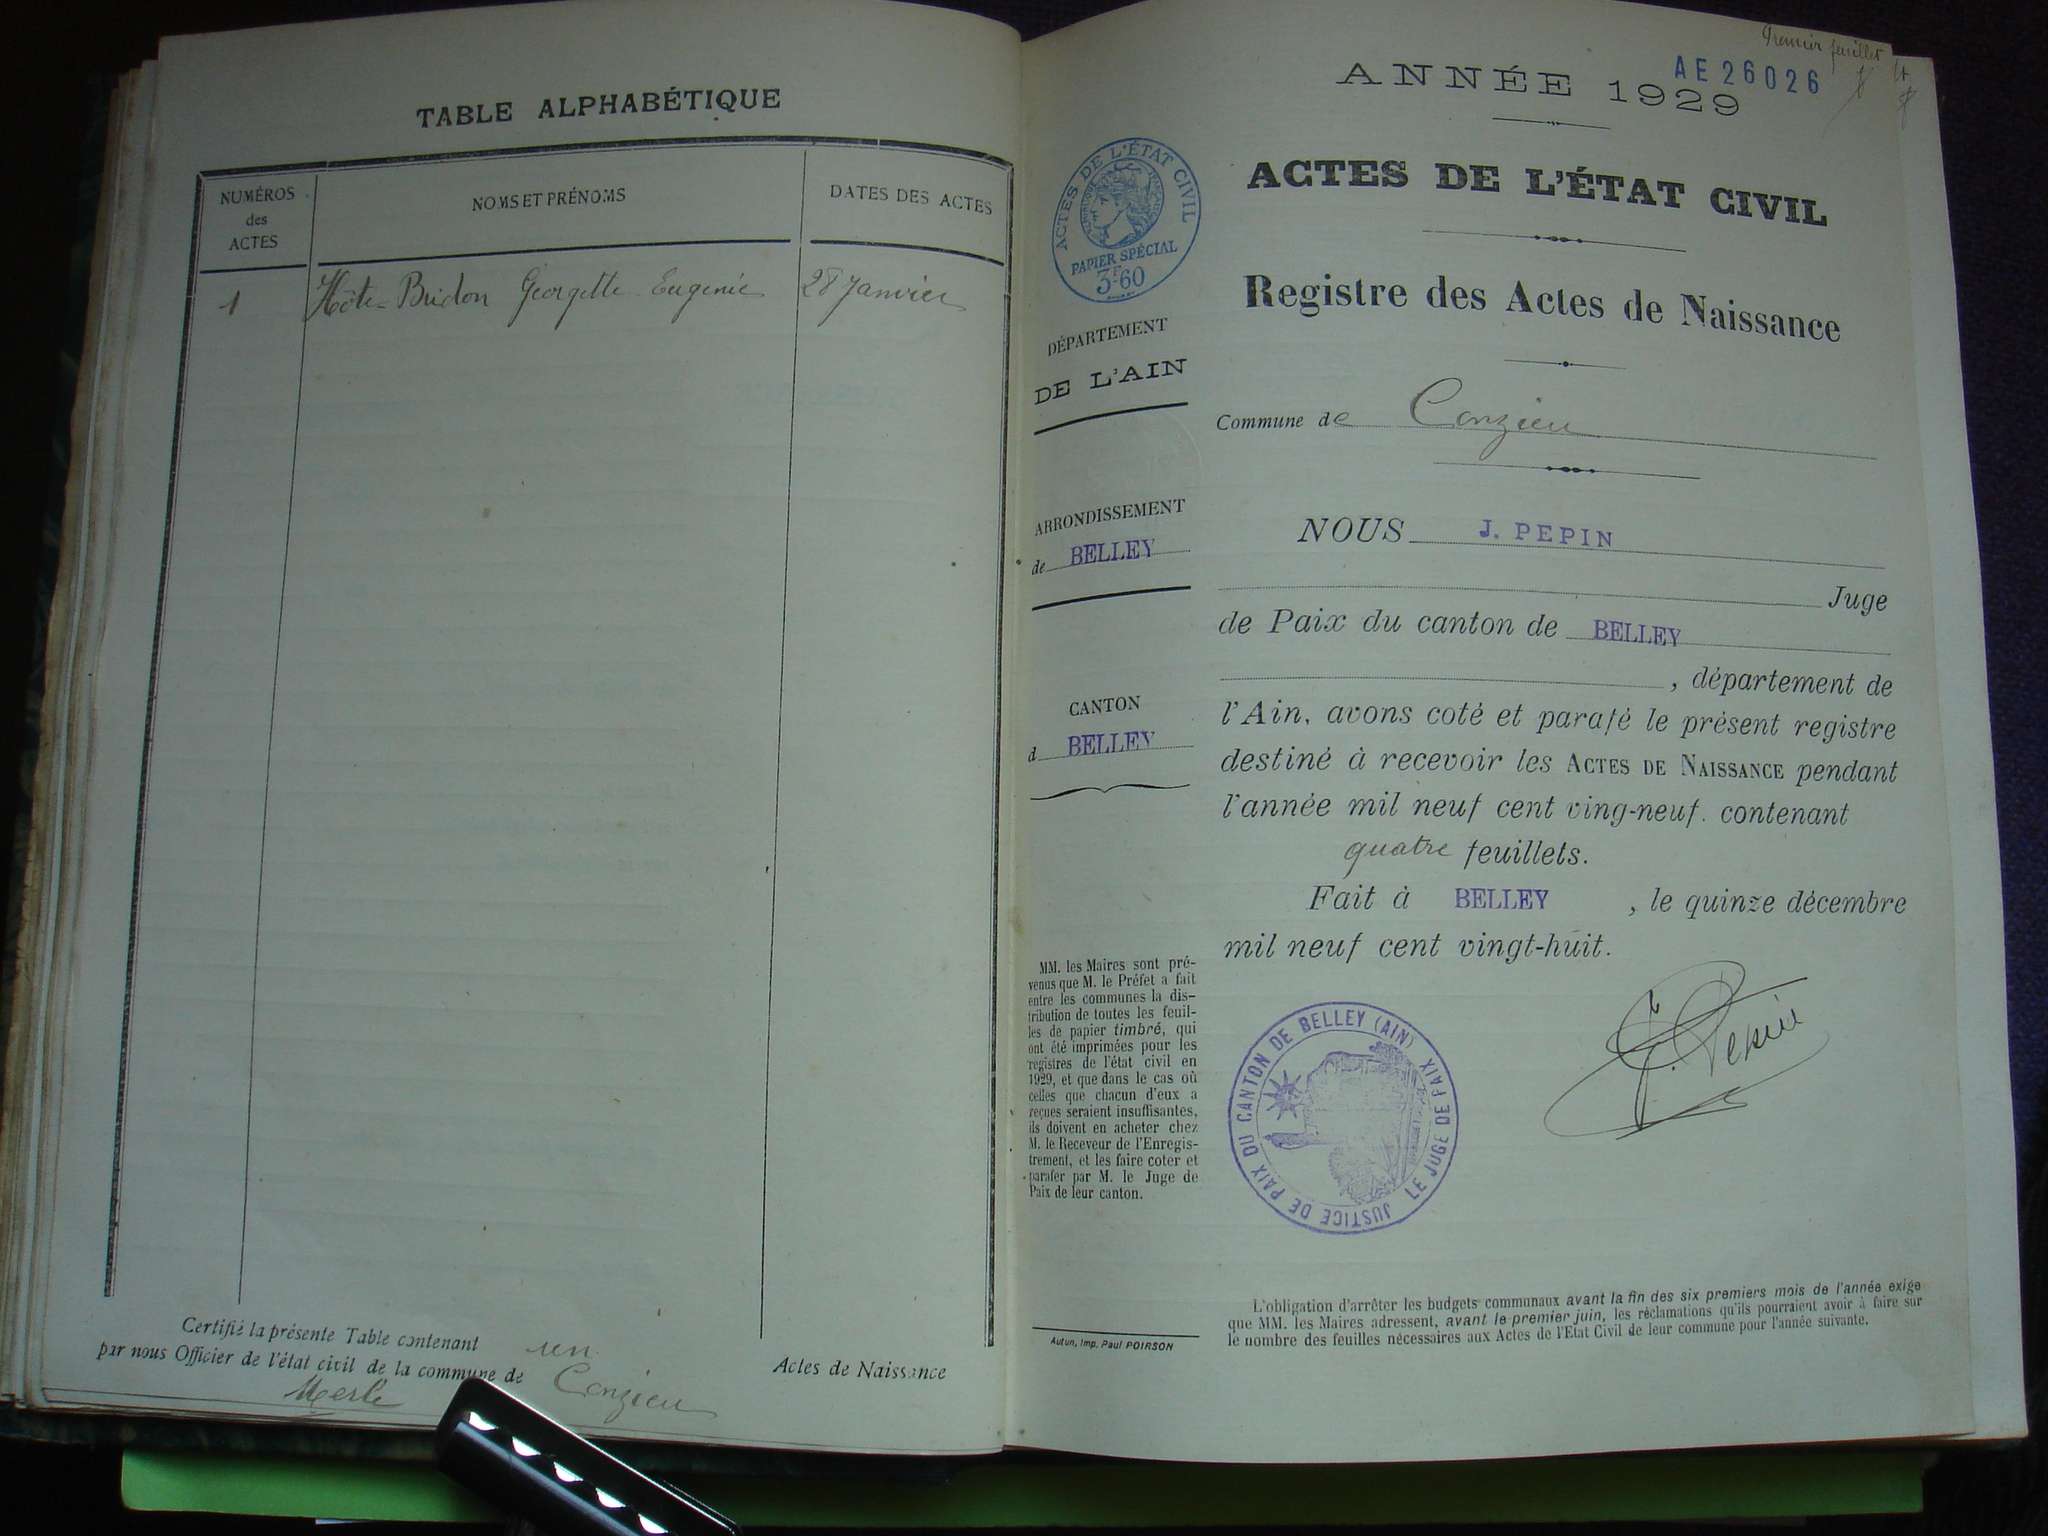 TABLE ALPHABÉTIQUE
NUMÉROS
des
ACTES
NOMS ET PRÉNOMS
DATES DES ACTES
1 Hôte-Bridon Georgette Eugénie 28 Janvier
Certifié la présente Table contenant un Actes de Naissance
par nous Officier de l'état civil de la commune de Conzieu
Merle
Premier feuillet
AE 26026
ANNÉE 1929
ACTES DE L'ÉTAT CIVIL
PAPIER SPÉCIAL
3F60
ACTES DE L'ÉTAT CIVIL
Registre des Actes de Naissance
DÉPARTEMENT
DE L'AIN
Commune de Conzieu
ARRONDISSEMENT
de BELLEY
CANTON
d BELLEY
NOUS J. PEPIN
Juge
de Paix du canton de BELLEY
, département de
l'Ain, avons coté et parafé le présent registre
destiné à recevoir les ACTES DE NAISSANCE pendant
l'année mil neuf cent ving-neuf. contenant
quatre feuillets.
Fait à BELLEY , le quinze décembre
mil neuf cent vingt-huit.
MM. les Maires sont pré-
venus que M. le Préfet a fait
entre les communes la dis-
tribution de toutes les feuil-
les de papier timbré, qui
ont été imprimées pour les
registres de l'état civil en
1929, et que dans le cas où
celles que chacun d'eux a
reçues seraient insuffisantes,
ils doivent en acheter chez
M. le Receveur de l'Enregis-
trement, et les faire coter et
parafer par M. le Juge de
Paix de leur canton.
J. Pepin
JUSTICE DE PAIX DU CANTON DE BELLEY (AIN)
LE JUGE DE PAIX
L'obligation d'arrêter les budgets communaux avant la fin des six premiers mois de l'année exige
que MM. les Maires adressent, avant le premier juin, les réclamations qu'ils pourraient avoir à faire sur
le nombre des feuilles nécessaires aux Actes de l'Etat Civil de leur commune pour l'année suivante.
Autun, Imp. Paul POIRSON